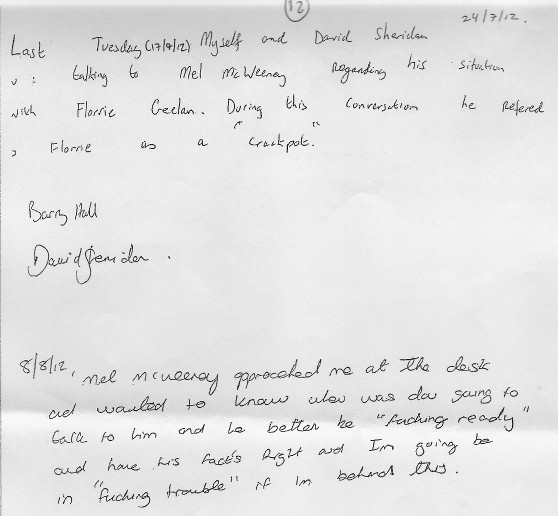 12
24/7/12.
Last Tuesday (17/7/12) Myself and David Sheridan
talking to Mel McWeeney Regarding his situation
with Florrie Geelan. During this Conversation he Refered
Florrie as a "Crackpot."
Barry Hall
David Sheridan.
8/8/12, Mel McWeeney approached me at the desk
and wanted to know when was dav going to
talk to him and he better be "fucking ready"
and have his fact's Right and Im going be
in "fucking trouble" if Im behind this.